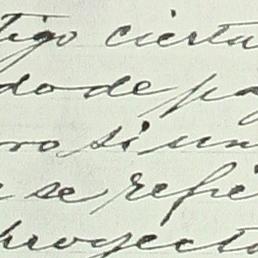 tigo cierta
do de pa
ro si un
se refie
proyecto